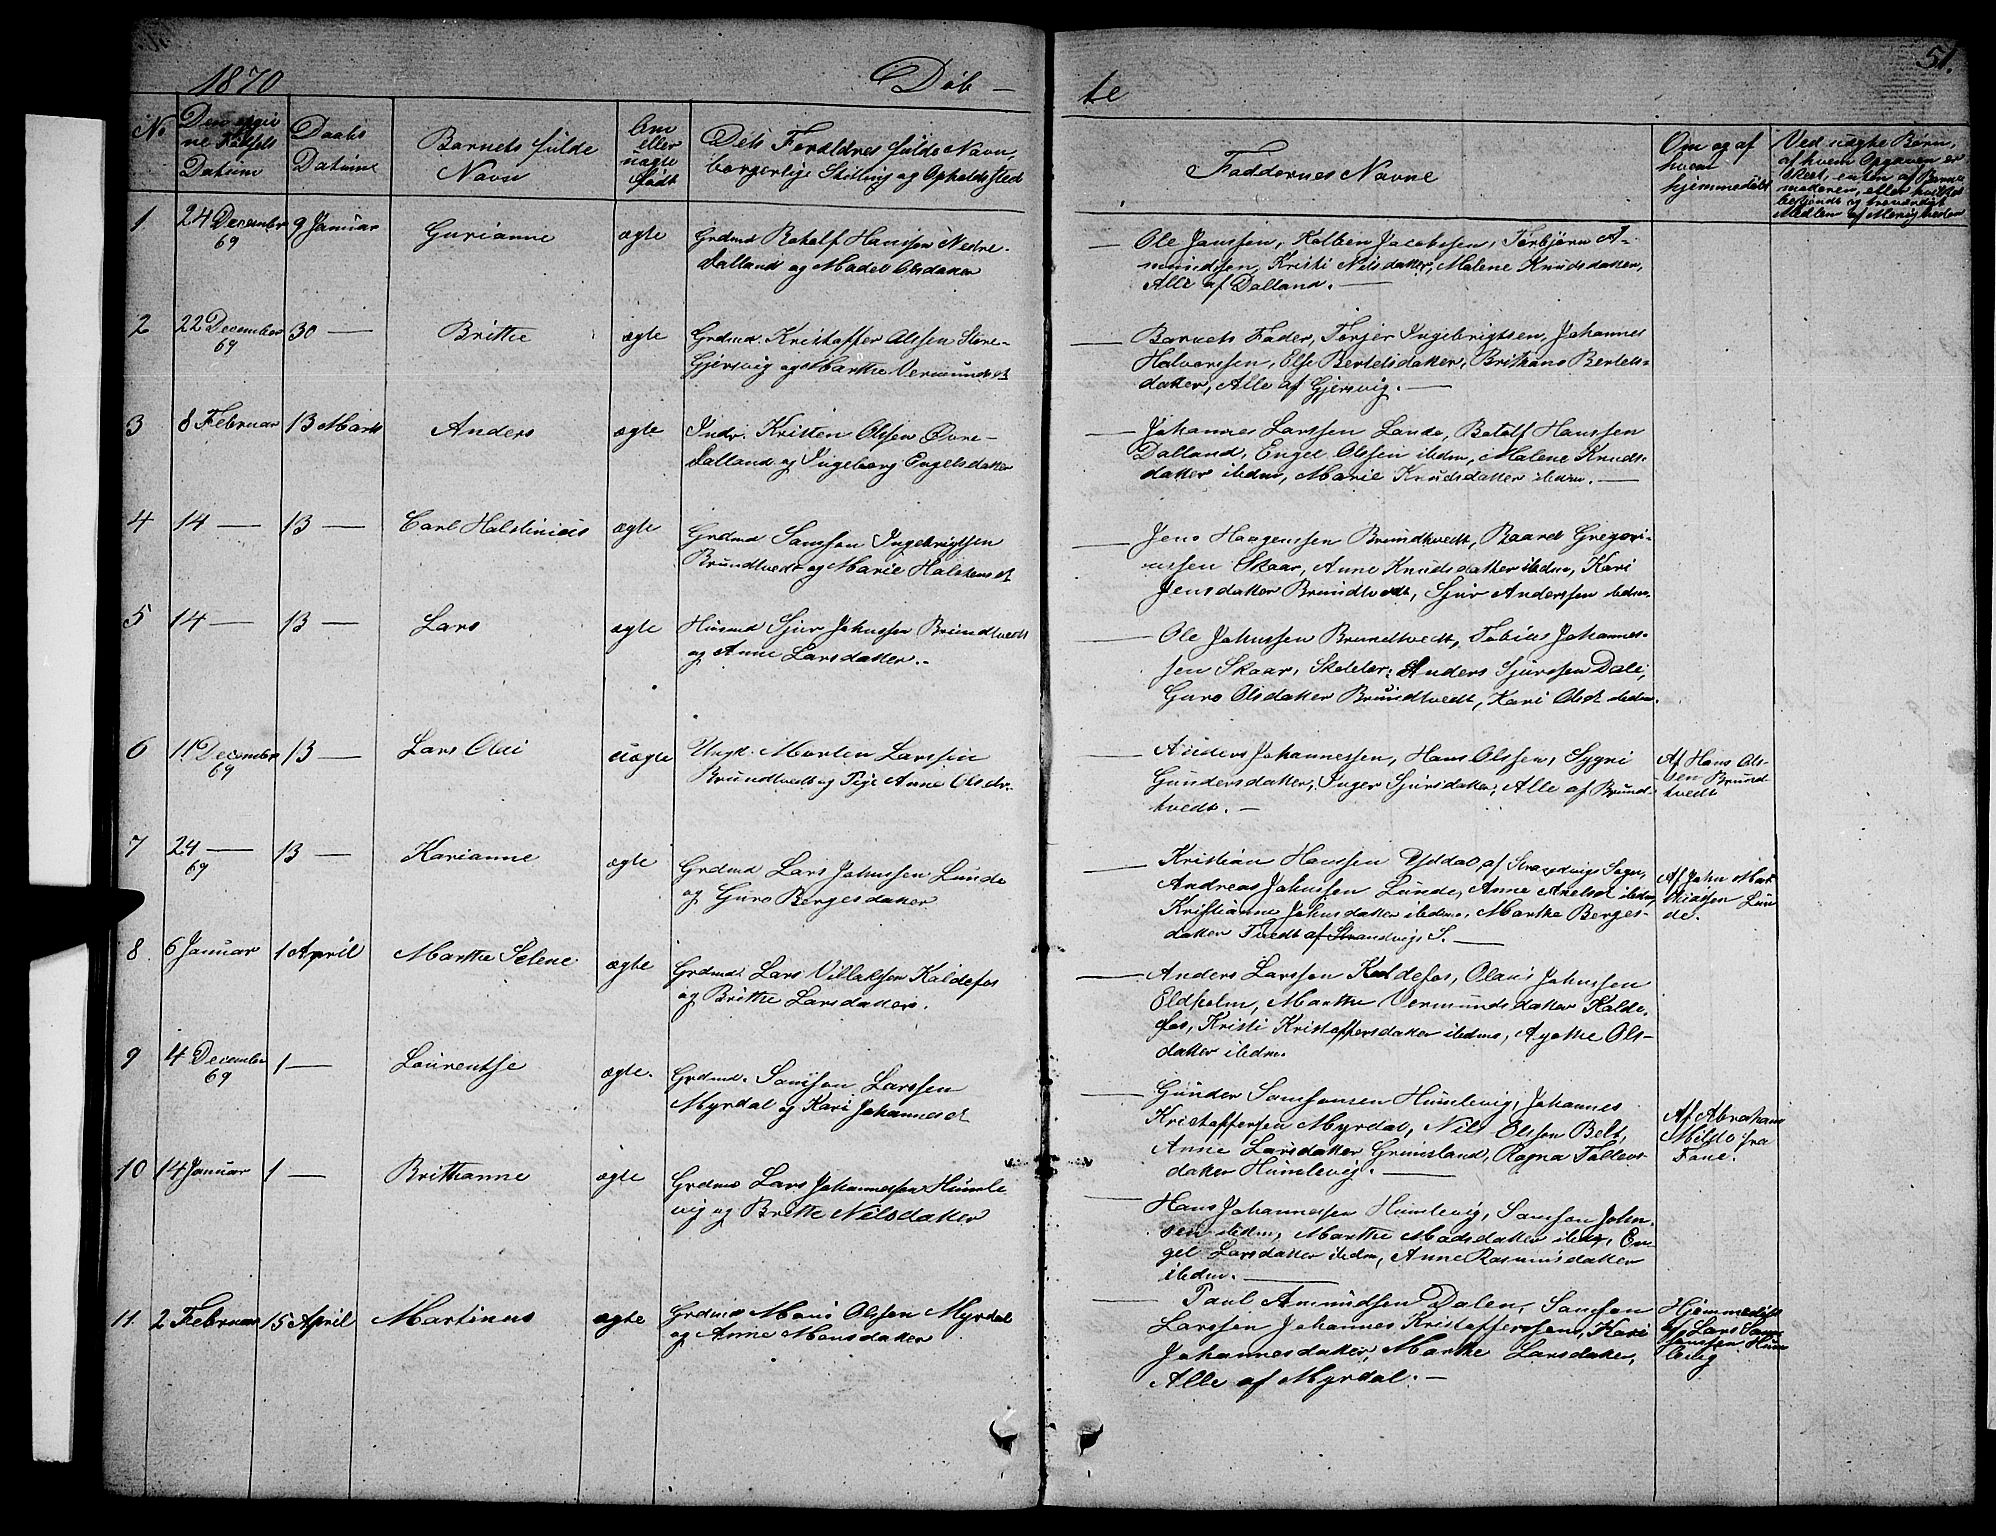 1870
Döb —
te
51.
No
Den egne
ne Fødsels
Datum
Daabs
Datum
Barnets fulde
Navn
Om
eller
uægte
født
Dets Forældres fulde Navn,
borgerlige Stilling og Opholdssted
Faddernes Navne
Om og af
hvem
hjemmedøbt
Ved uægte Børn,
af hvem Opgaven er
skeet, enten af Barne
moderen, eller hvilket
bekjendt og troværdigt
Medlem af Menigheden
1
24 December
69
9 Januar
Gurianne
ægte
Grdmd Botolf Hanssen Nedre-
Dalland og Madel Olsdatter
— Ole Janssen, Kolben Jacobsen, Torbjørn A-
mundsen, Kristi Nilsdatter, Malene Knudsdatter,
Alle af Dalland. —
2
22 December
69
30 —
Britha
ægte
Grdmd. Kristoffer Olssen Store-
Gjersvig og Marthe Vermundsdt
— Barnets Fader, Torjer Ingebrigtsen, Johannes
Halvorssen, Else Bertelsdatter, Brithano Bertels-
datter, Alle af Gjersvig. —
3
8 Februar
13 Marts
Anders
ægte
Indr. Kristen Olssen Øvre-
Dalland og Ingeborg Engelsdatter
— Johannes Larssen Lande, Botolf Hanssen
Dalland, Engel Olssen ibdm, Malene Knuds-
datter ibdm, Marie Knudsdatter ibdm. —
4
14 —
13 —
Carl Halstinius
ægte
Grdmd Samson Ingebrigtsen
Brundtvedt og Marie Halstensdt
— Jens Haagenssen Brundtvedt, Baard Gregori-
ussen Skaar, Anne Knudsdatter ibdm, Kari
Jensdatter Brundtvedt, Sjur Anderssen ibdm.
5
14 —
13 —
Lars
ægte
Husmd Sjur Johnssen Brundtvedt
og Anne Larsdatter. -
Ole Johnssen Brundtvedt, Tobias Johannes-
sen Skaar, Skolelær; Anders Sjurssen Dale,
Guro Olsdatter Brundtvedt, Kari Olsdt ibdm.
6
11 December
69
13 —
Lars Olai
uægte
Ungd. Morten Larssen
Brundtvedt og Pige Anne Olsdr.
— Anders Johannessen, Hans Olssen, Sygni
Gundersdatter, Inger Sjursdatter, Alle af Brund-
tvedt. —
Af Hans Ols-
sen Brund
tvedt
7
24 —
69
13 —
Karianne
ægte
Grdmd Lars Johnssen Lunde
og Guro Bergesdatter
— Kristian Hanssen Yddal af Strandvigs Sogn,
Andreas Johnssen Lunde, Anne Axelsdt ibdm,
Kristianne Johnsdatter ibdm. Marthe Berges-
datter Tvedt af Strandvigs S. —
Af John Mat
thiassen Lun
de.
8.
6 Januar
1 April
Marthe Selene
ægte
Grdmd. Lars Villaksen Koldefos
og Brithe Larsdatter.
— Anders Larssen Koldefos, Olaus Johnssen
Eldholm, Marthe Vermundsdatter Kolde-
fos, Kristi Kristoffersdatter ibdm, Agathe Ols-
datter ibdm.
9
4 December
69
1 —
Laurentse
ægte.
Grdmd. Samson Larssen
Myrdal og Kari Johannesdt
— Gunder Samsonsen Humlevig, Johannes
Kristoffersen Myrdal, Nils Olsson Belt,
Anne Larsdatter Grimsland, Ragna Tollevs-
datter Humlevig. —
Af Abraham
Milde fra
Fane.
10
14 Januar
1 —
Brithanne
ægte
Grdmd Lars Johannessen Humle
vig og Brithe Nilsdatter
— Hans Johannessen Humlevig, Samson John-
sen ibdm, Marthe Madsdatter ibdm, En-
gel Larsdatter ibdm, Anne Rasmusdatter
ibdm. —
11.
2 Februar
15 April
Martinus
ægte
Grdmd Mons Olssen Myrdal
og Anne Monsdatter
— Paul Amundsen Dalen, Samson
Larssen Johannes Kristofferssen, Kari
Johannesdatter, Marthe Larsdatter,
Alle af Myrdal. —
Hjemmedøbt
af Lars Sam
sonssen Hum
levig